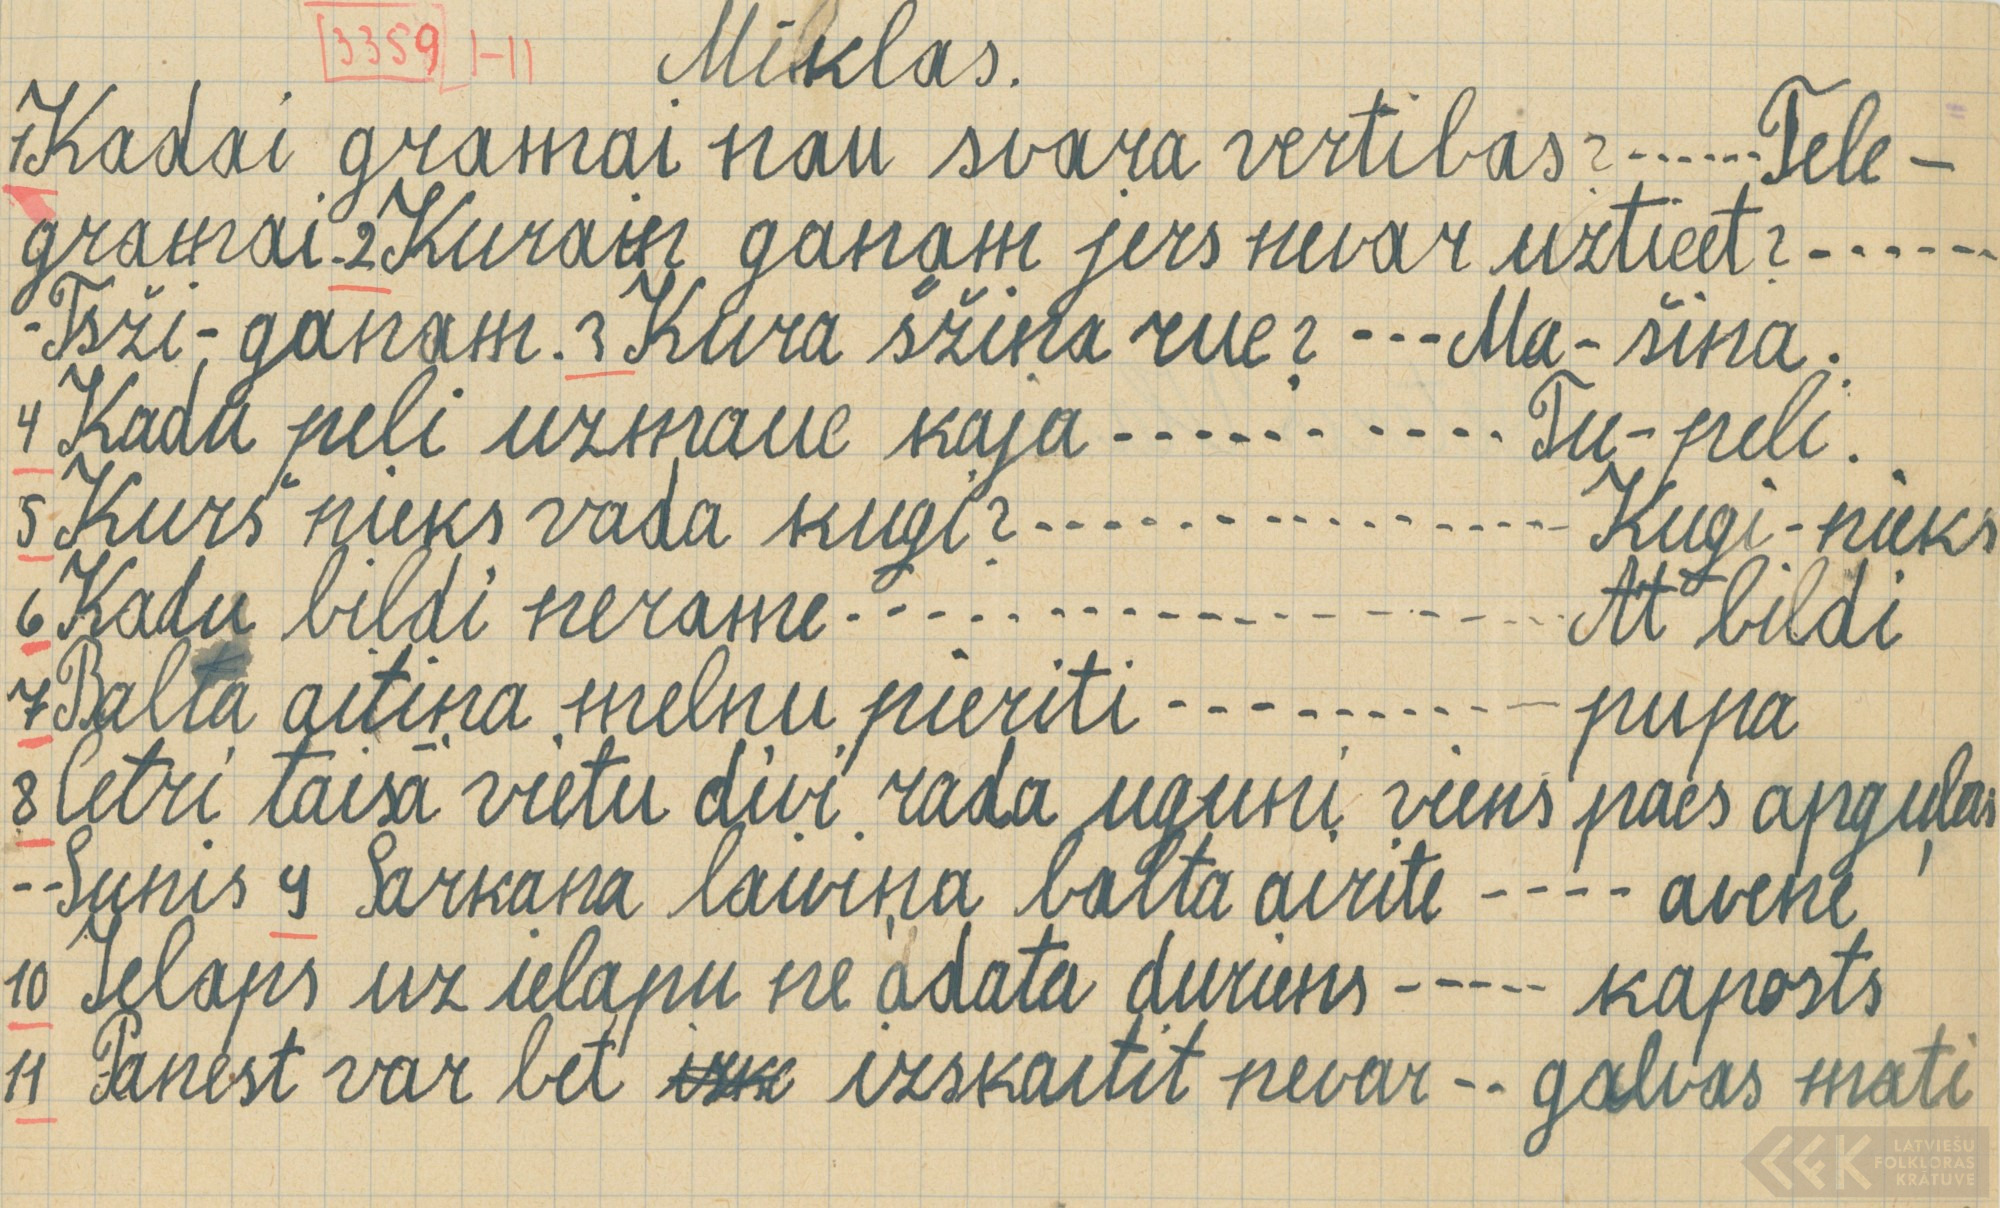 3359 1-11
Miklas.
1 Kadai gramai nau svara vertibas? ...... Tele-
gramai. 2 Kuram ganam jers nevar uzticet? ------
-Tsži-ganam. 3 Kura šžina rue? --- Ma-šina.
4 Kadu peli uzmaue kaja ---------- Tu-peli.
5 Kurš nieks vada kugi? -------------- Kugi-nieks
6 Kadu bildi nerame -------------- At bildi
7 Balta aitiņa melnu pieriti --------- pupa
8 Cetri taisā vietu divi rada uguni viens paes apguļas
--Sunis 9 Sarkana laiviņa balta airite ---- avene
10 Ielaps uz ielapu ne adata duriens ----- kaposts
11 Panest var bet izskaitit nevar -- galvas mati
LATVIEŠU
FOLKLORAS
KRĀTUVE